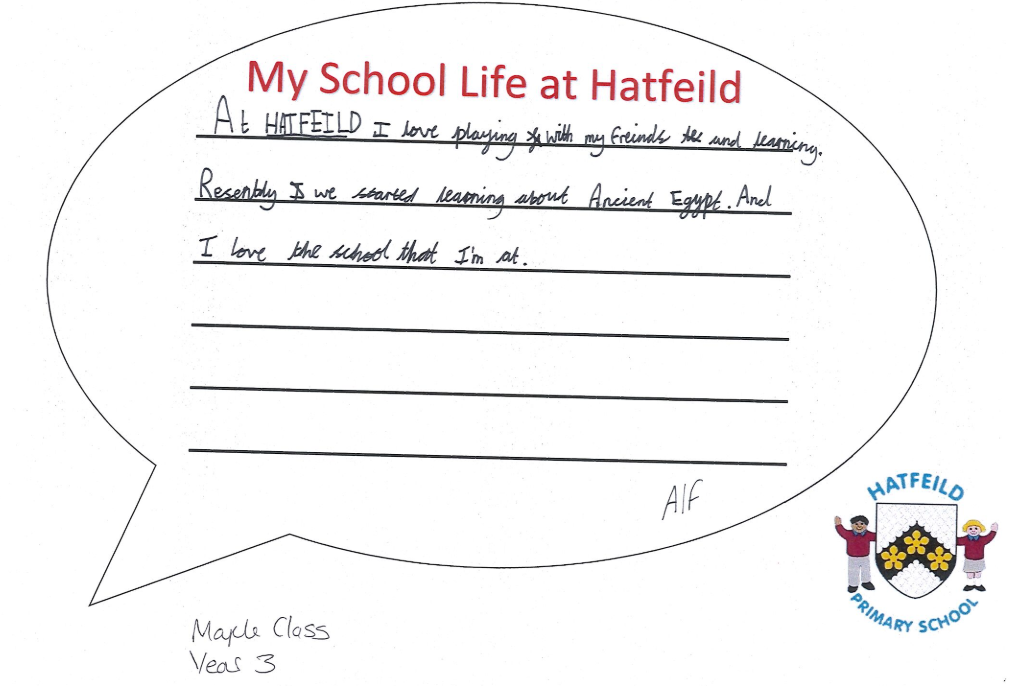 My School Life at Hatfeild
At HATFEILD I love playing with my freinds and learning.
Resenbly we started learning about Ancient Egypt. And
I love the school that I'm at.
Alf
HATFEILD
PRIMARY SCHOOL
Maple Class
Year 3